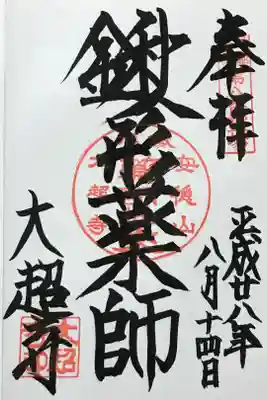 奉拝
平成廿八年
八月十四日
鍬形薬師
大超寺